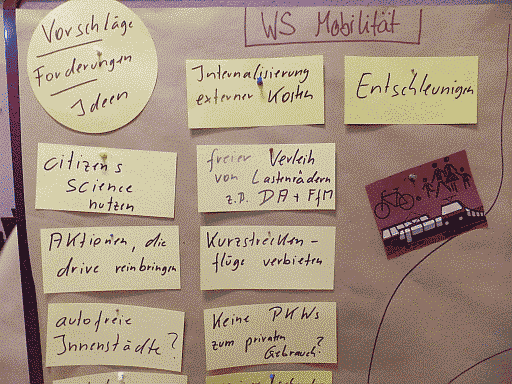 WS Mobilität
Vorschläge
Forderungen
Ideen
Internalisierung
externer Kosten
Entschleunigen
citizens
science
nutzen
freier Verleih
von Lastenrädern
z.B. DA + FfM
Aktionen, die
drive reinbringen
Kurzstrecken-
flüge verbieten
autofreie
Innenstädte?
Keine PKWs
zum privaten
Gebrauch?